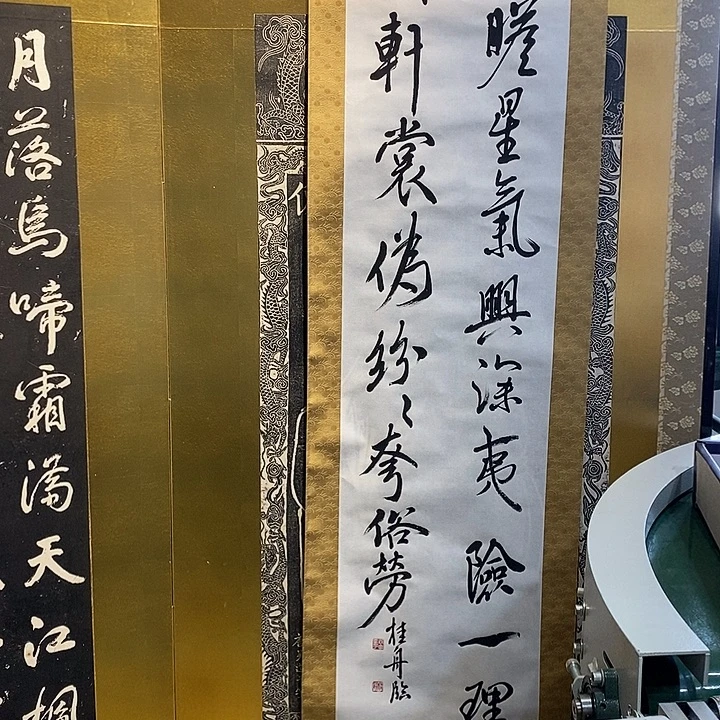 星氣興深夷險一理
軒裳偽紛々夸俗勞
桂舟臨
月落烏啼霜滿天江楓